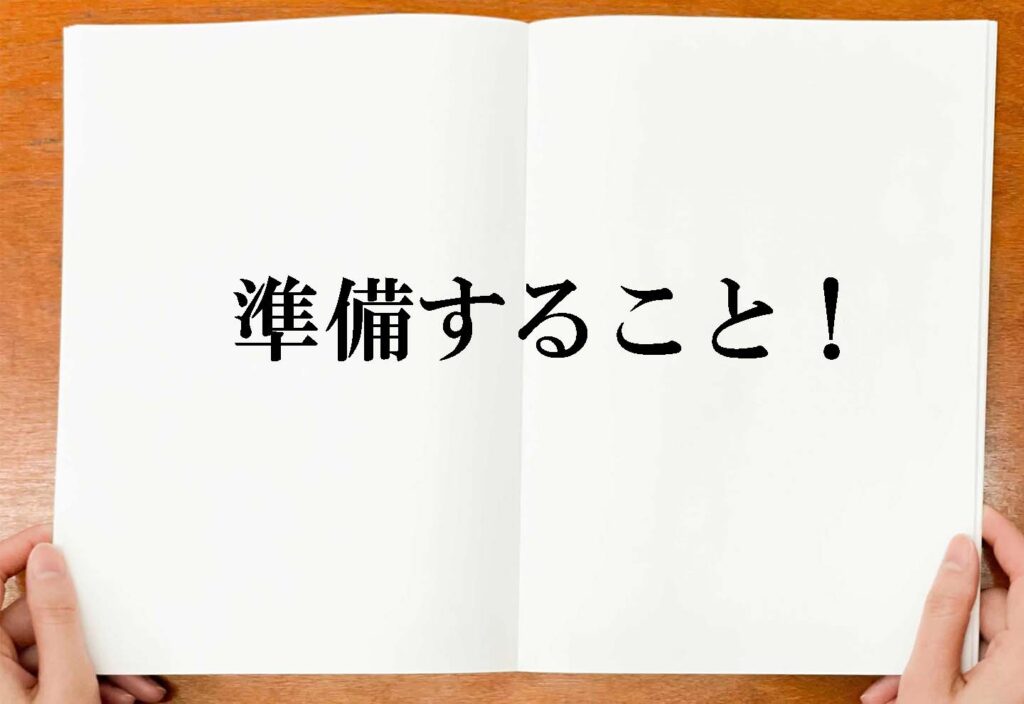 準備すること！